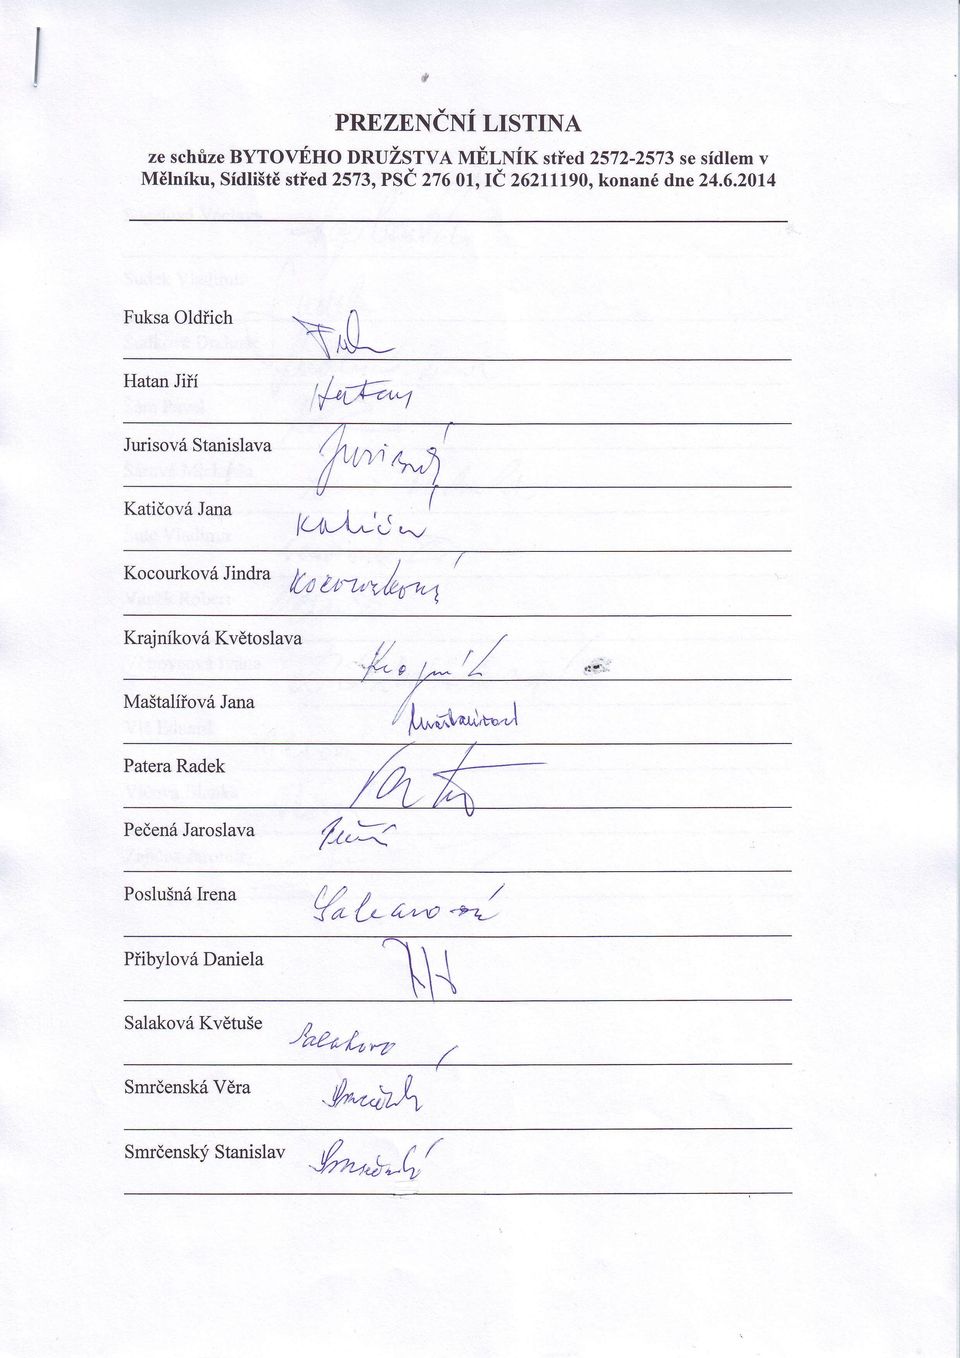 PREZENČNÍ LISTINA
ze schůze BYTOVÉHO DRUŽSTVA MĚLNÍK střed 2572-2573 se sídlem v
Mělníku, Sídliště střed 2573, PSČ 276 01, IČ 26211190, konané dne 24.6.2014
Fuksa Oldřich
Hatan Jiří Hatan
Jurisová Stanislava Jurisová
Katičová Jana
Kocourková Jindra Kocourková
Krajníková Květoslava
Maštalířová Jana
Patera Radek
Pečená Jaroslava
Poslušná Irena
Přibylová Daniela
Salaková Květuše Salaková
Smrčenská Věra
Smrčenský Stanislav